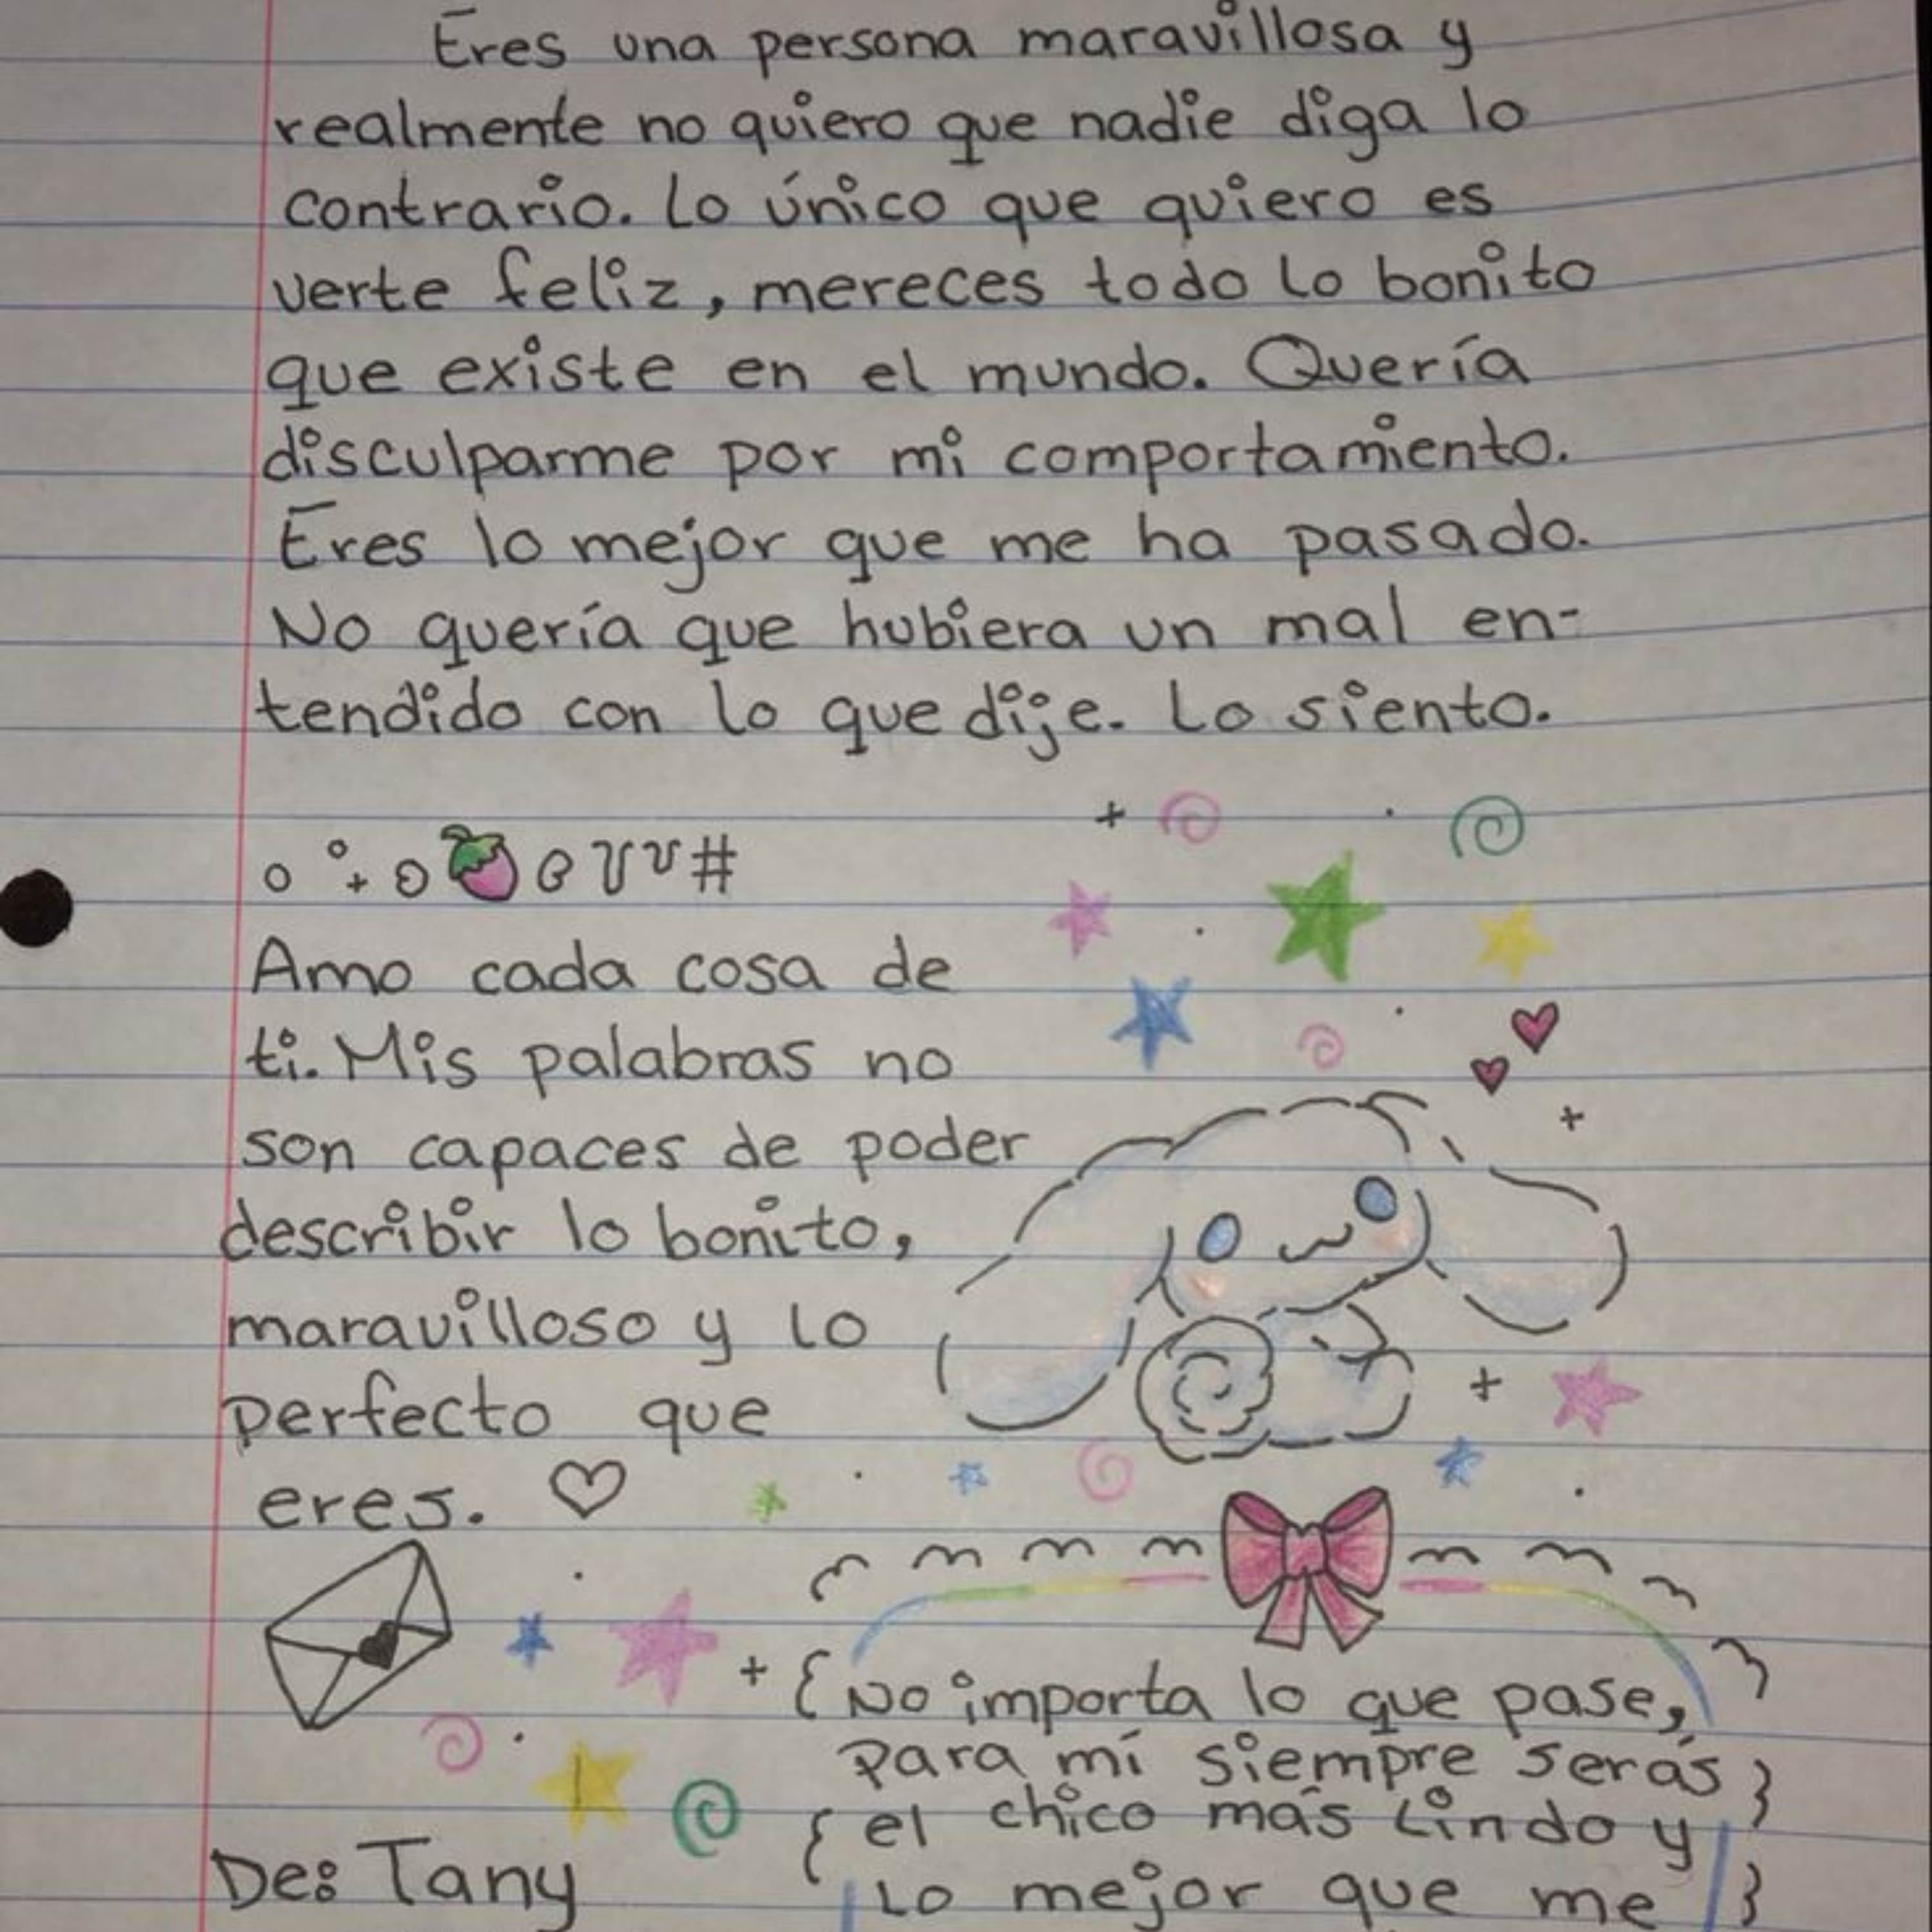 Eres una persona maravillosa y
realmente no quiero que nadie diga lo
contrario. Lo único que quiero es
verte feliz, mereces todo lo bonito
que existe en el mundo. Quería
disculparme por mi comportamiento.
Eres lo mejor que me ha pasado.
No quería que hubiera un mal en-
tendido con lo que dije. Lo siento.
Amo cada cosa de
ti. Mis palabras no
son capaces de poder
describir lo bonito,
maravilloso y lo
perfecto que
eres. ♡
De: Tany
No importa lo que pase,
para mí siempre serás
el chico más lindo y
lo mejor que me